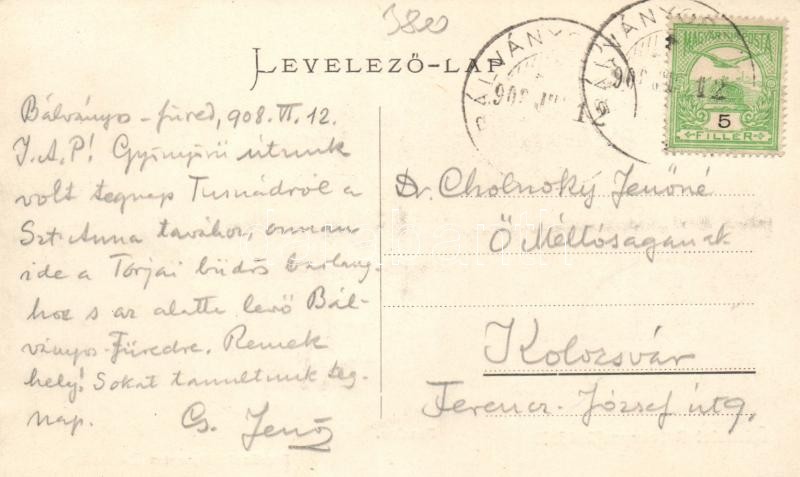 3800
LEVELEZŐ-LAP
BÁLVÁNYOS
BÁLVÁNYOS
908
12
MAGYAR KIR. POSTA
5
FILLÉR
Bálványos-füred, 908. VI. 12.
I. A. P! Gyönyörű útunk
volt tegnap Tusnádról a
Szt. Anna tavához, onnan
ide a Torjai büdös barlang-
hoz s az alatta levő Bál-
ványos-Füredre. Remek
hely! Sokat tanultunk teg-
nap. Cs. Jenő
Dr. Cholnoky Jenőné
Ő Méltóságának
Kolozsvár
Ferencz-József út 9.